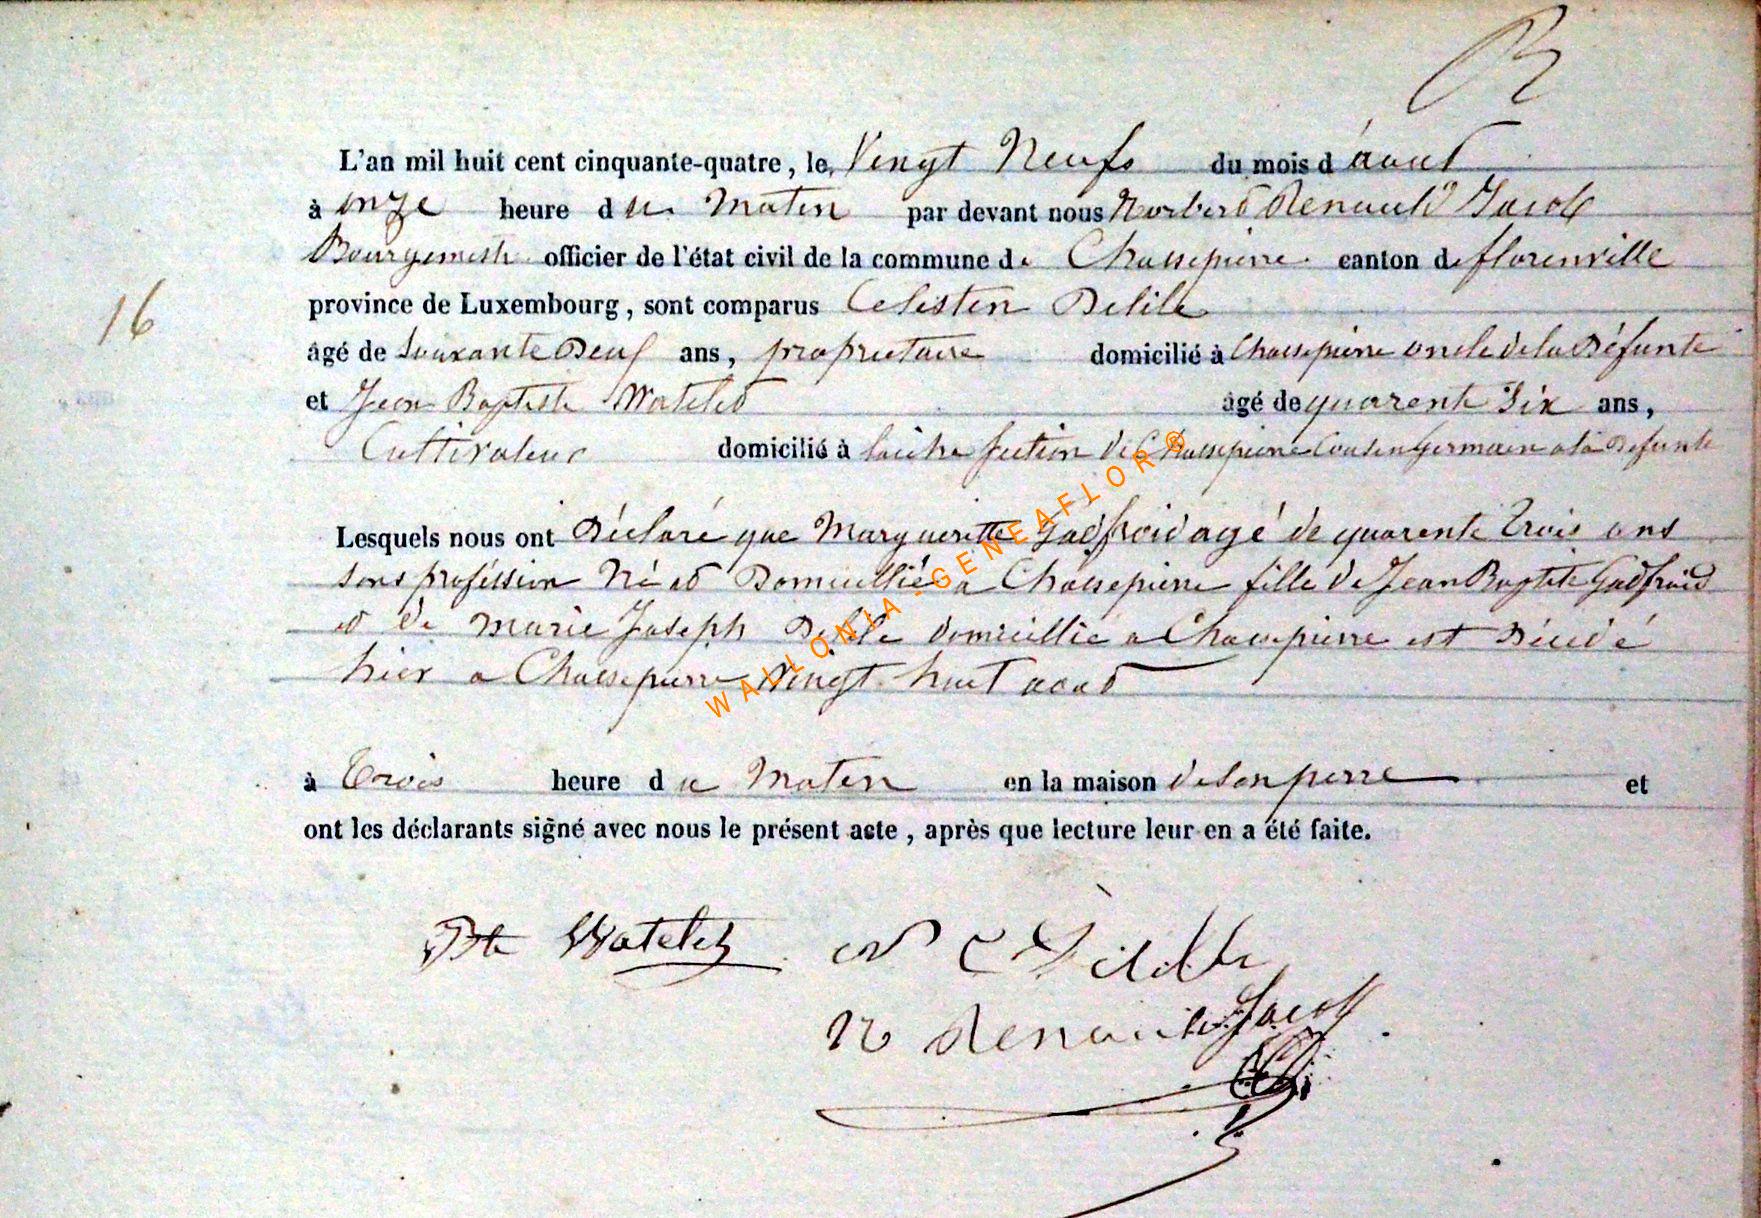 L'an mil huit cent cinquante-quatre, le, Vingt Neufs du mois d'aout
à onze heure du Matin par devant nous Norbert Renauld Jacob
Bourgmestre officier de l'état civil de la commune de Chassepierre canton de florenville
16
province de Luxembourg, sont comparus Celesten Delile
âgé de Souxante Deuf ans, proprietaire domicilié à Chassepierre oncle de la Défunte
et Jean Baptiste Watelet âgé de quarente Six ans,
Cultivateur domicilié à Laiche section de Chassepierre Cousin germain a la Defunte
Lesquels nous ont Déclaré que Marguerette Godfroid agé de quarente trois ans
sans proféssion Né et Domicillié a Chassepierre fille de Jean Baptiste Godfroid
et de marie Joseph Delile domicillié a Chassepierre est Décedé
hier a Chassepierre Vingt huit aout
à trois heure du Maten en la maison de son perre et
ont les déclarants signé avec nous le présent acte, après que lecture leur en a été faite.
Bte Watelet
N Renauld Jacob
WALLONIA-GENEAFLOR®